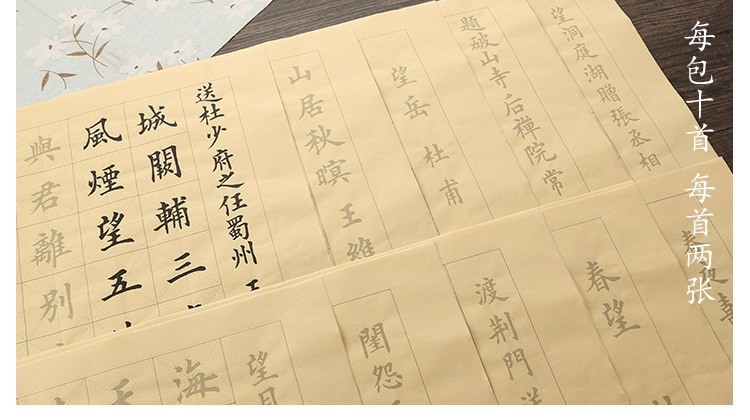 每包十首 每首两张
望洞庭湖贈張丞相
題破山寺后禪院常
望岳 杜甫
山居秋暝 王維
送杜少府之任蜀州
城闕輔三
風煙望五
與君離別
春夜
春望
渡荆門送
閨怨
望月
海